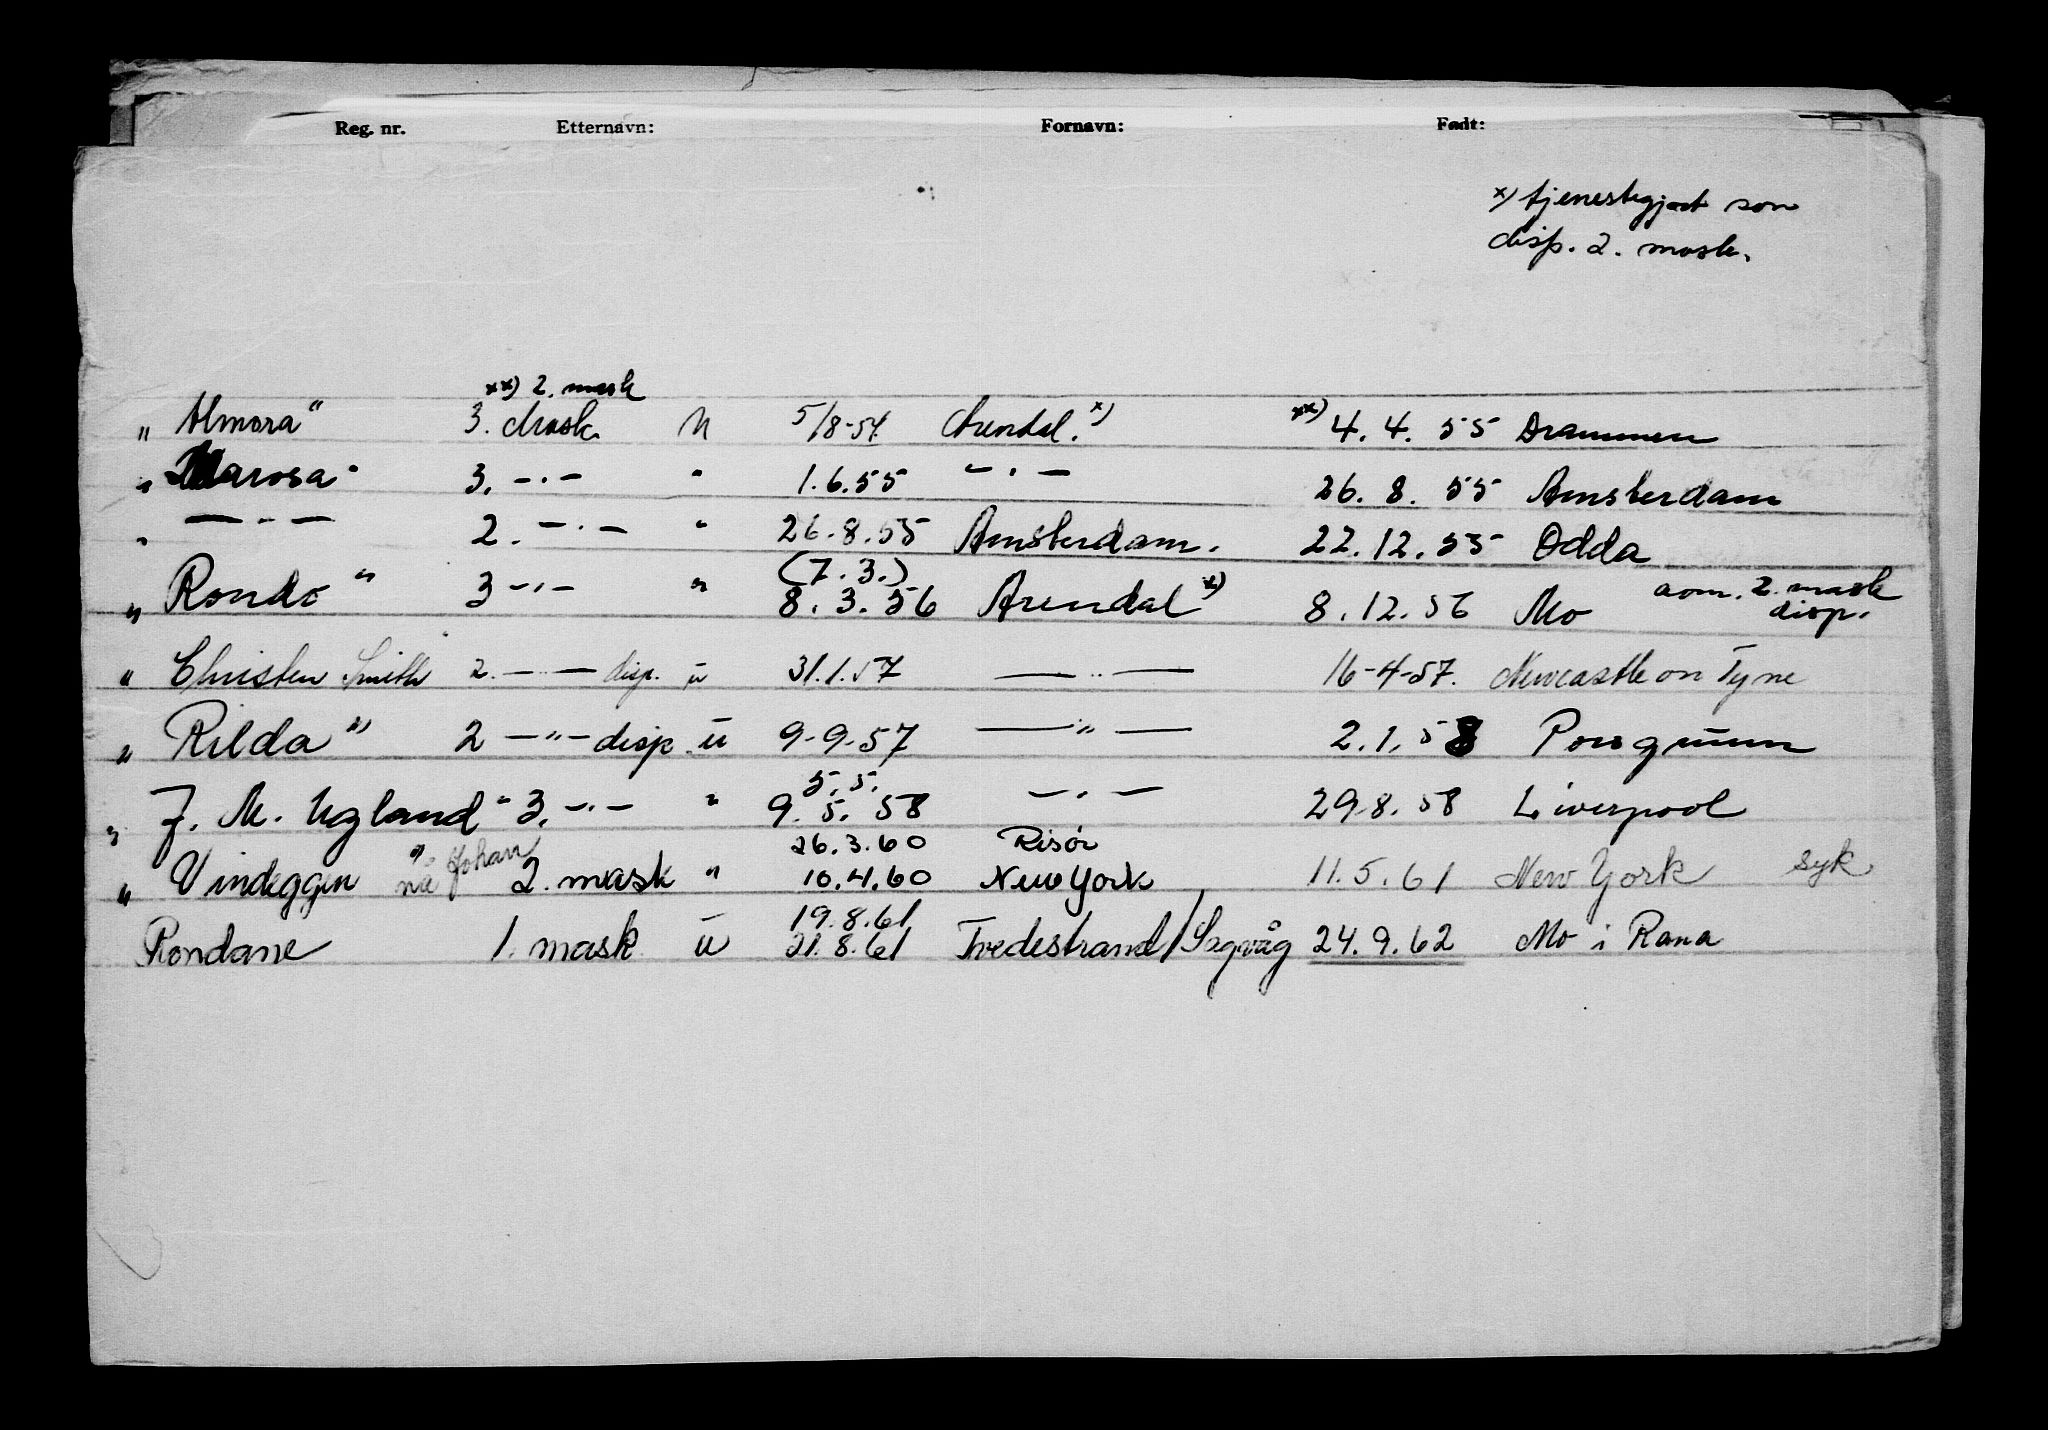 Reg. nr. Etternavn: Fornavn: Født:
x) tjenestegjort som
disp. 2. mask.
xx) 2. mask
" Almora" 3. Mask. u 5/8-54 Arendal. x) xx) 4.4.55 Drammen
" Marosa" 3. -"- " 1.6.55 -"- 26.8.55 Amsterdam
" -"- 2. -"- " 26.8.55 Amsterdam. 22.12.55 Odda
(7.3.)
" Rondo" 3 -"- " 8.3.56 Arendal x) 8.12.56 Mo som. 2. mask
disp.
" Christen Smith 2. -"- disp. u 31.1.57 -"- 16-4-57. Newcastle on Tyne
" Rilda" 2 -"- disp. u 9-9-57 -"- 2.1.58 Porsgrunn
5.5.
" J. M. Ugland" 3. -"- " 9.5.58 -"- 29.8.58 Liverpool
26.3.60 Risør
" Vindeggen" nå Johan 2. mask " 10.4.60 New York 11.5.61 New York syk
19.8.61
Rondane 1. mask u 21.8.61 Tvedestrand/Sagvåg 24.9.62 Mo i Rana